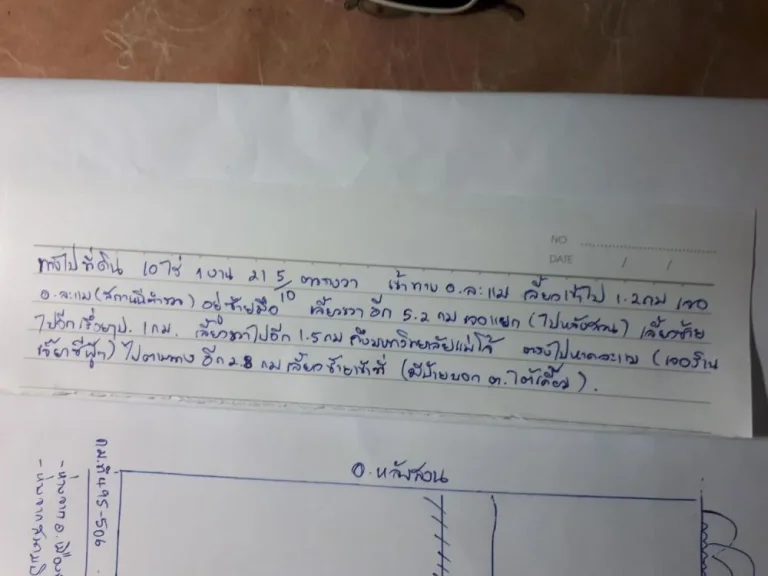 NO.
DATE / /
ทางไปที่ดิน 10 ไร่ 1 งาน 21 5/10 ตารางวา เข้าทาง อ.ละแม เลี้ยวเข้าไป 1.2 กม เจอ
อ.ละแม (สถานีตำรวจ) อยู่ซ้ายมือ เลี้ยวขวา อีก 5.2 กม เจอแยก (ไปหลังสวน) เลี้ยวซ้าย
ไปอีกเรื่อยๆ 1 กม. เลี้ยวขวาไปอีก 1.5 กม ถึงมหาวิทยาลัยแม่โจ้ ตรงไปหาดละแม (เจอร้าน
เจ๊ยาซีฟู๊ด) ไปตามทาง อีก 2.8 กม เลี้ยวซ้ายเข้า (มีป้ายบอก ต.ใต้เคี่ยม).
อ.หลังสวน
กม.ที่ 495-506